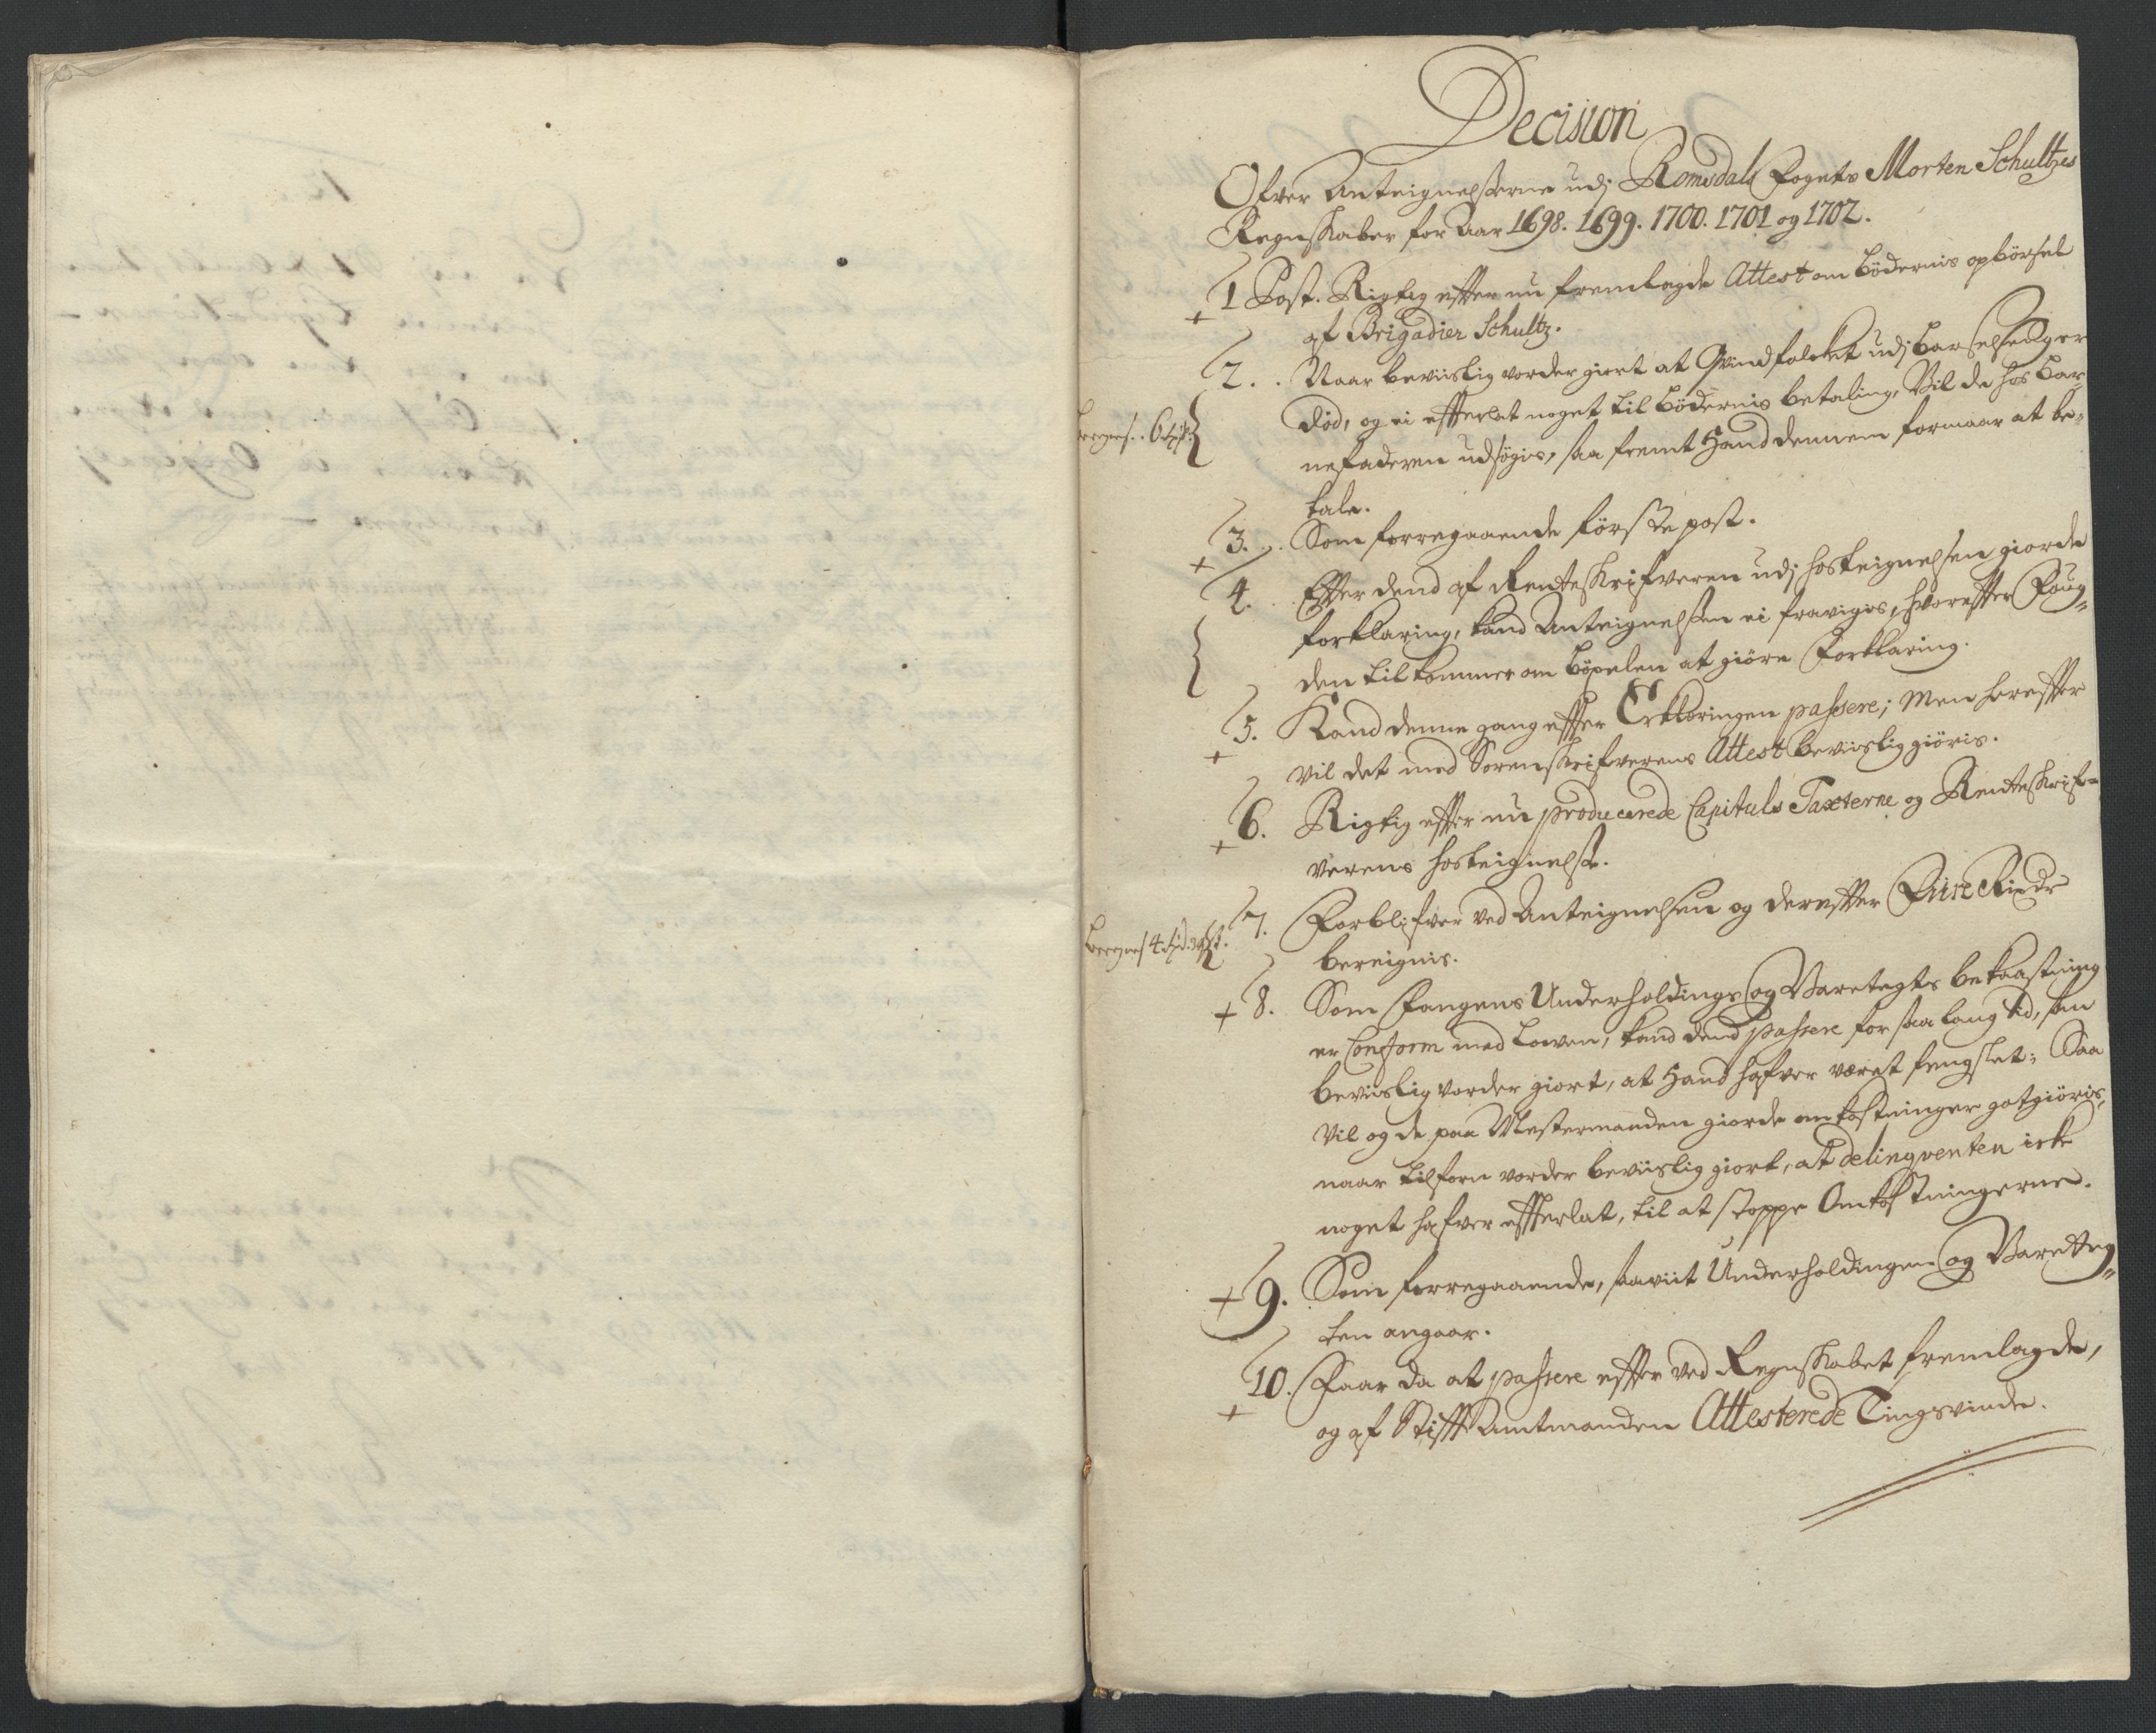 Decision
Ofver Anteignelserne udj Romsdals Fogets Morten Schultzes
Regnskaber for Aar 1698. 1699. 1700. 1701 og 1702.
+ 1 Post. Rigtig efter nu fremlagde Attest om bödernis opbörsel
af Brigadier Schultz.
2. . Naar beviislig vorder giort at Qvindfolcket udj barselseng er
död, og ei efterlat noget til bödernis betaling, Vil de hos bar¬
nefaderen udsögis, saa fremt Hand dennem formaar at be¬
tale.
+ 3. . Som forregaaende förste post.
4. Efter dend af Renteskrifveren udj hosteignelsen giorde
forklaring, kand Anteignelsen ei fravigis, hvorefter Foug¬
den tilkommer om böxelen at giöre Forklaring.
+ 5. Kand denne gang efter Erkleringen passere; Men herefter
Vil det med Sorenskrifverens Attest beviislig giöris.
+ 6. Rigtig efter nu producerede Capituls Taxterne og Renteskrif¬
verens hosteignelse.
7. Forblifver ved Anteignelsen og derefter
bereignis.
+ 8. Som Fangens Underholdings og Varetegts bekaastning
er Conform med Lowen, kand dend passere for saa lang tid, som
beviislig vorder giort, at Hand hafver været fengslet; Saa
Vil og de paa Mestermanden giorde omkostninger gotgiöris,
naar tilforn vorder beviislig giort, at delinqventen icke
noget hafver efterlat, til at stoppe Omkostningerne.
+ 9. Som forregaaende, saaviit Underholdingen og Varetteg¬
ten angaar.
+ 10. Faar da at passere efter ved Regnskabet fremlagde,
og af Stift Amtmanden Attesterede Tingsvinde.